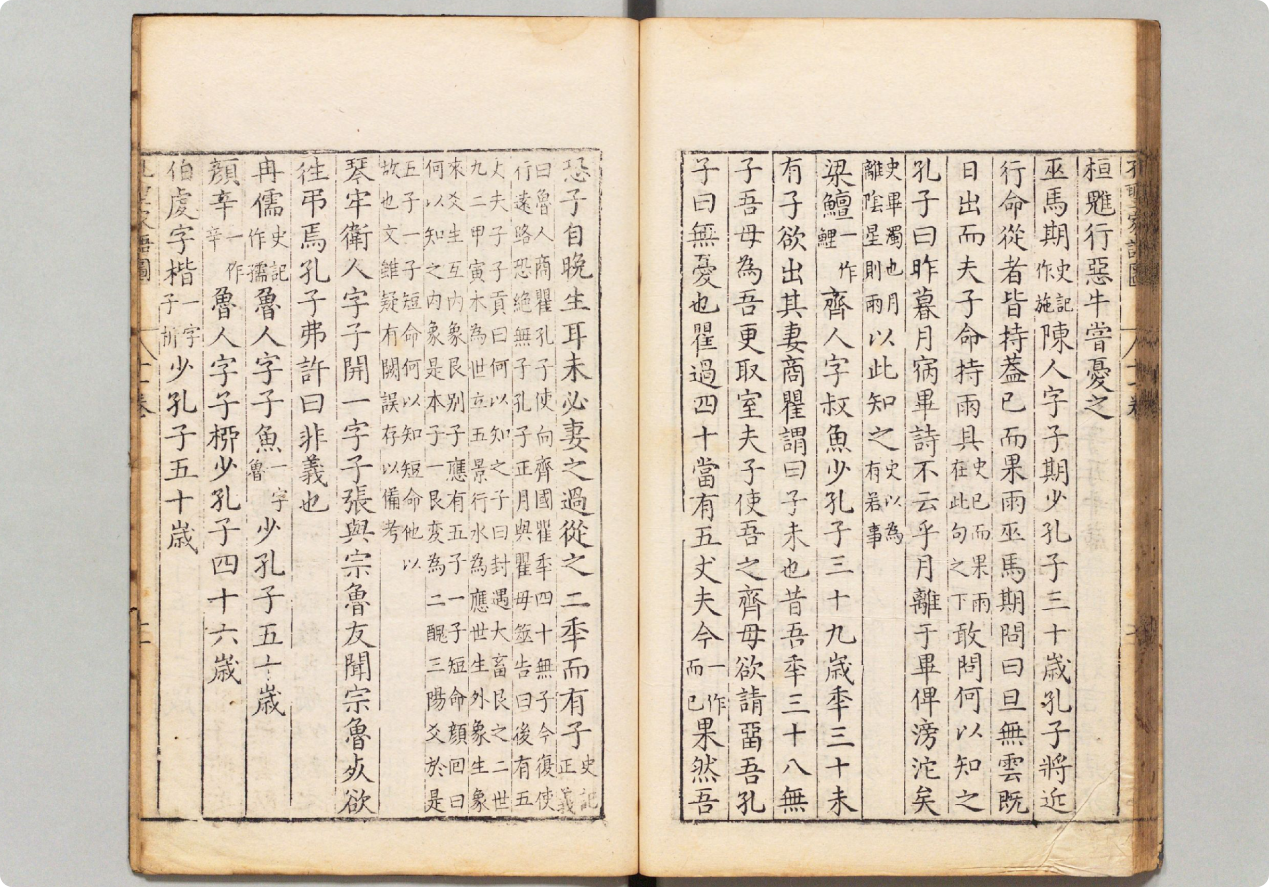 桓魋行惡牛嘗憂之
巫馬期史記作施陳人字子期少孔子三十歲孔子將近
行命從者皆持蓋已而果雨巫馬期問曰旦無雲既
日出而夫子命持雨具史已而果雨在此句之下敢問何以知之
孔子曰昨暮月宿畢詩不云乎月離于畢俾滂沱矣
史畢濁也月離陰星則雨以此知之史以為有若事
梁鱣一作鯉齊人字叔魚少孔子三十九歲年三十未
有子欲出其妻商瞿謂曰子未也昔吾年三十八無
子吾母為吾更取室夫子使吾之齊母欲請留吾孔
子曰無憂也瞿過四十當有五丈夫今一作而已果然吾
恐子自晚生耳未必妻之過從之二年而有子史記正義
曰魯人商瞿孔子使向齊國瞿年四十無子今復使
行遠路恐絕無子孔子正月與瞿母筮告曰後有五
丈夫子子貢曰何以知之子曰卦遇大畜艮之二世
九二甲寅木為世立五景行水為應世生外象生象
來爻生互内象艮别子應有五子一子短命顏回曰
何以知之内象是本子一艮変為二醜三陽爻於是
五子一子短命何以知短命他以
故也文雖疑有闕誤存以備考
琴牢衛人字子開一字子張與宗魯友聞宗魯死欲
往弔焉孔子弗許曰非義也
冉儒史記作孺魯人字子魚一字魯少孔子五十歲
顏辛一作辛魯人字子栁少孔子四十六歲
伯虔字楷一字子析少孔子五十歲